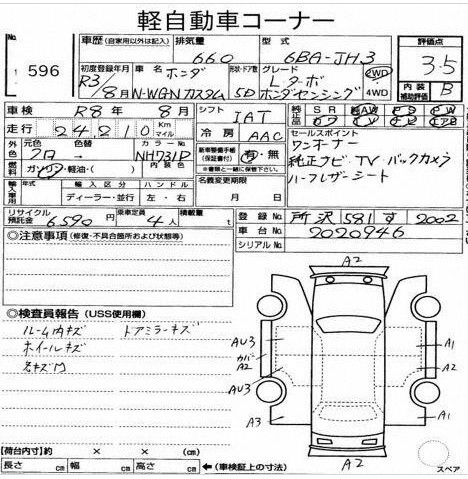 軽自動車コーナー
No. 596
車歴 (自家用以外は記入) 排気量 660 型式 6BA-JH3 評価点 3.5
初度登録年月 R3/8月 車名 ホンダ N-WGNカスタム 形状・ドア数 5D グレード Lターボ ホンダセンシング 2WD 4WD 内装 補助評価 B
車検 R8年 8月 シフト IAT 純正品 SR AW PS PW
走行 24,210 Km マイル 冷房 AAC
外色 元色 クロ→ 色替 カラーNo. NH731D 内装色 新車整備手帳 (保証書付) 有・無 ※書類と一緒に保管 セールスポイント
燃料 ガソリン・軽油・( ) ワンオーナー
輸入車用 年式 輸入区分 ディーラー・並行 ハンドル 左・右 名義変更期限 月 日 純正ナビ TV バックカメラ
ハーフレザーシート
リサイクル預託金 6590円 乗車定員 4人 積載量 t 登録No. 所沢 581 す 2002
◎注意事項 (修復・不具合箇所および状態等) 車台No. 2020946
シリアルNo.
◎検査員報告 (USS使用欄)
ルーム内キズ ドアミラーキズ
ホイールキズ
A2
AU3
カバー A2
AU3
A3
A1
A2
A1
A2
スペア
【荷台内寸】約 × × (cm)
長さ cm 幅 cm 高さ cm ←(車検証上の寸法)